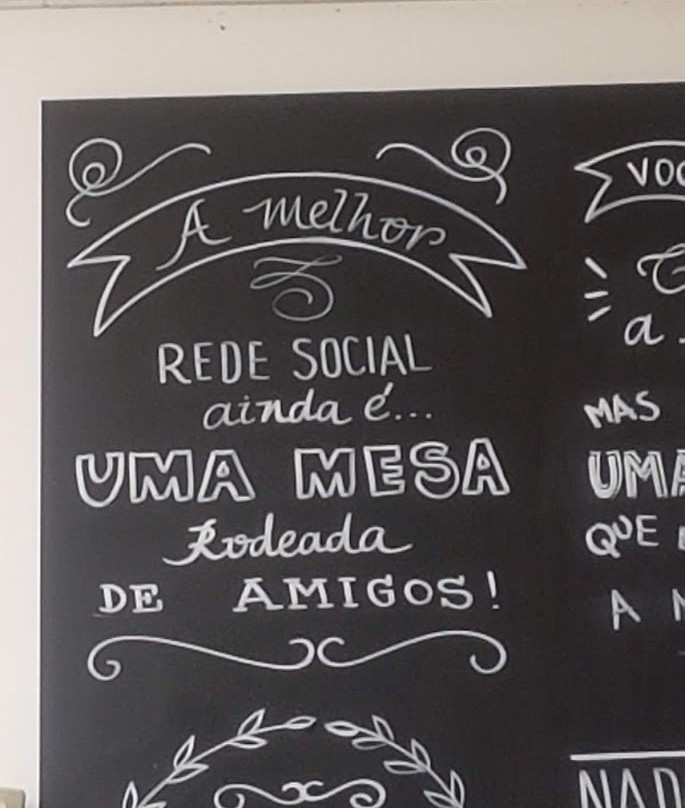 A melhor
REDE SOCIAL
ainda é...
UMA MESA
Rodeada
DE AMIGOS!
a
MAS
UMA
QUE
A